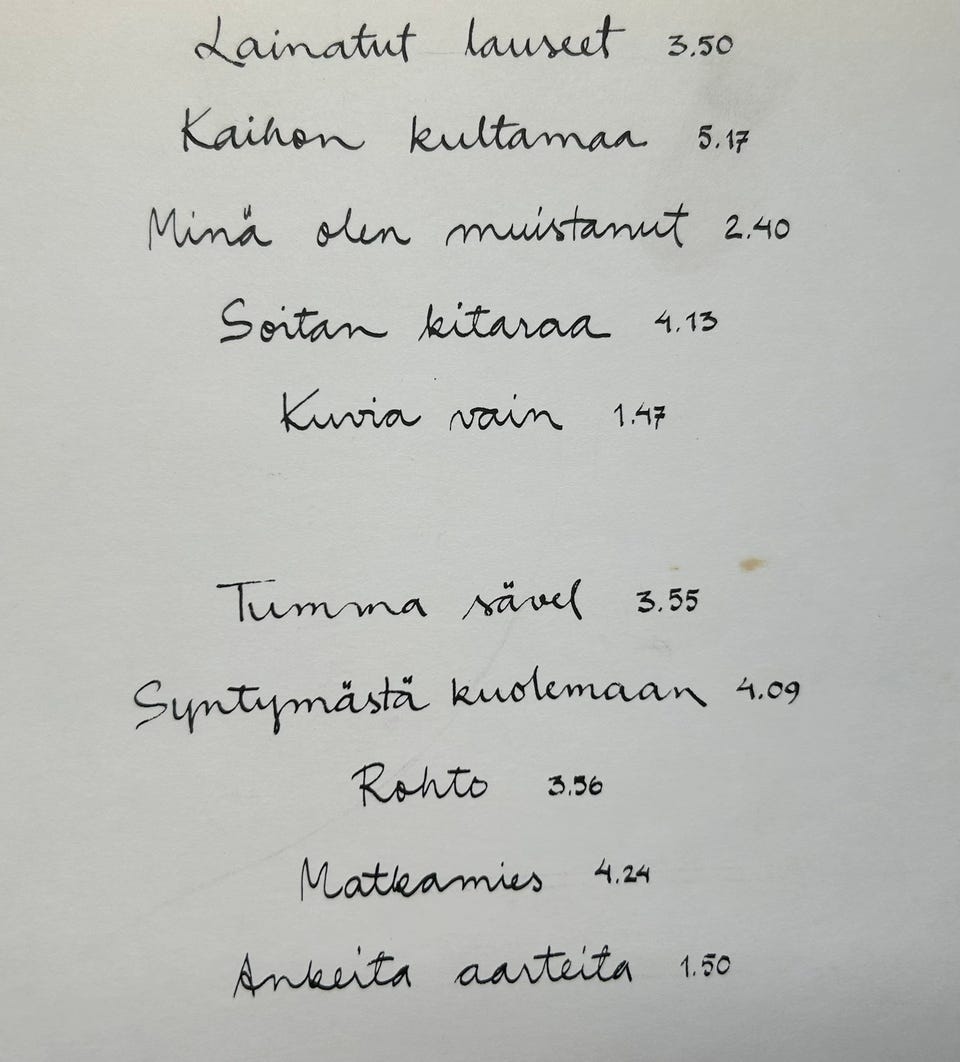 Lainatut lauseet 3.50
Kaihon kultamaa 5.17
Minä olen muistanut 2.40
Soitan kitaraa 4.13
Kuvia vain 1.47
Tumma sävel 3.55
Syntymästä kuolemaan 4.09
Rohto 3.56
Matkamies 4.24
Ankeita aarteita 1.50